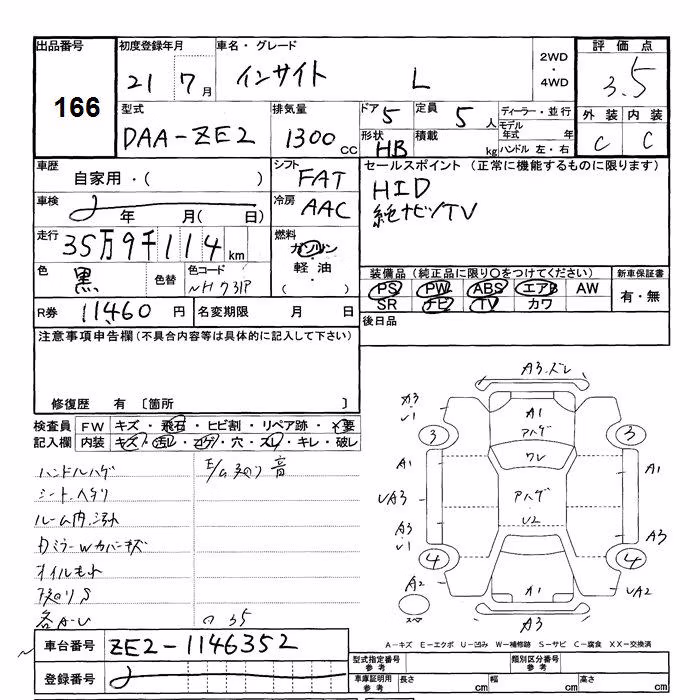 出品番号 初度登録年月 車名・グレード 2WD ・ 4WD 評価点
166 21 7月 インサイト L 3.5
型式 排気量 ドア 5 定員 5人 ディーラー・並行 外装 内装
DAA-ZE2 1300cc 形状 HB 積載 kg モデル年式 年 ハンドル 左・右 C C
車歴 シフト セールスポイント (正常に機能するものに限ります)
自家用・( ) FAT HID
車検 年 月( 日) 冷房 AAC 純ナビソTV
走行 35万9千114km 燃料 ガソリン・軽油・( )
色 黒 色替 色コード NH731P
装備品(純正品に限り○をつけてください) 新車保証書
PS PW ABS エアB AW 有・無
SR ナビ TV カワ
R券 11460円 名変期限 月 日 後日品
注意事項申告欄(不具合内容等は具体的に記入して下さい)
修復歴 有 〔箇所 〕
検査員 FW キズ・飛石・ヒビ割・リペア跡・×要
記入欄 内装 キズ・汚レ・コゲ・穴・スレ・キレ・破レ
ハンドルハゲ
シートヘタリ
ルーム内汚れ
Dミラーwカバーキズ
オイルもれ
各A・U
音
A3.ズレ
A3 U1 A1 アハゲ
3 ワレ 3
A1 A1
UA3 アハゲ
A3 U1 U2 A3
4 4
A2 A1 UA2
スペア A3
A-キズ E-エクボ U-凹み W-補修跡 S-サビ C-腐食 XX-交換済
車台番号 ZE2-1146352
型式指定番号 参考 類別区分番号 参考
登録番号 車庫証明用 参考 長さ cm 幅 cm 高さ cm